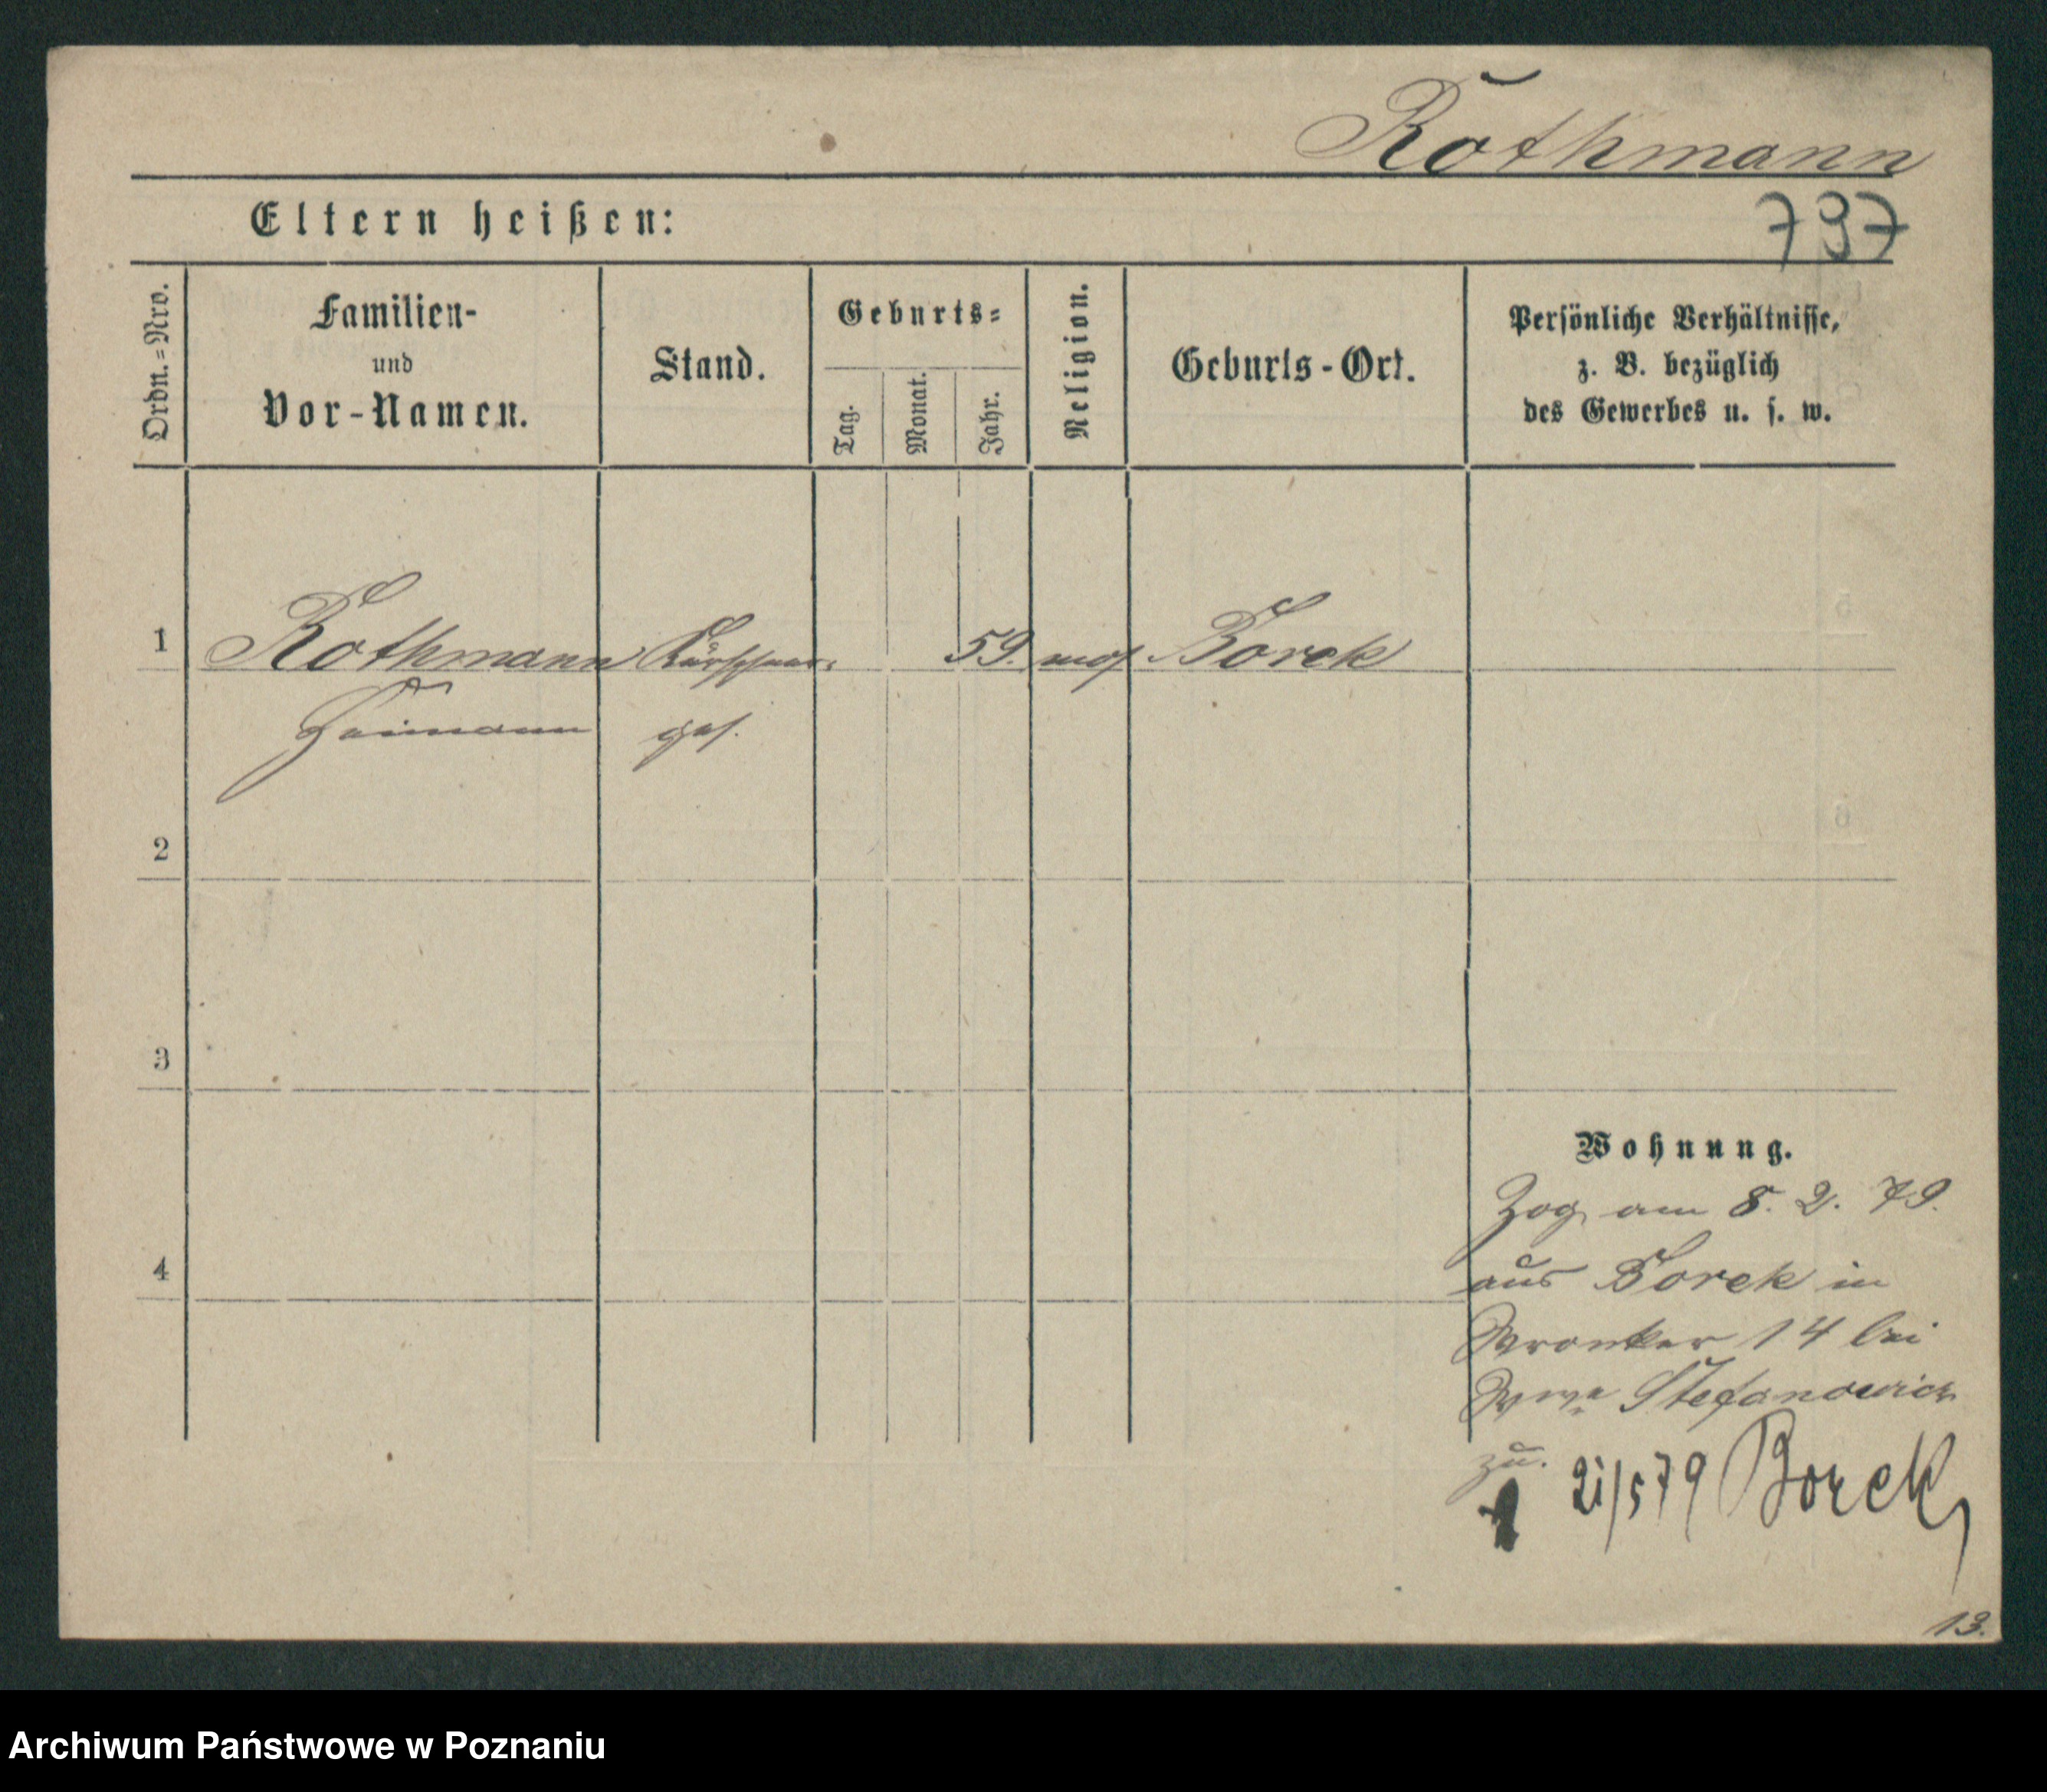 Rothmann
Eltern heißen:
797
Ordn.=Nro.
Familien-
und
Vor-Namen.
Stand.
Geburts=
Tag.
Monat.
Jahr.
Religion.
Geburts-Ort.
Persönliche Verhältnisse,
z. B. bezüglich
des Gewerbes u. s. w.
1 Rothmann Kürschner 59. mos. Borek
Heimann ges.
2
3
4
Wohnung.
Zog am 8. 2. 79.
aus Borek in
Wronker 14 bei
Wwe Stefanowicz
zu.
21/5 79 Borek
13.
Archiwum Państwowe w Poznaniu